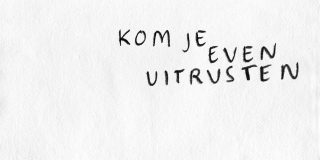 KOM JE
EVEN
UITRUSTEN